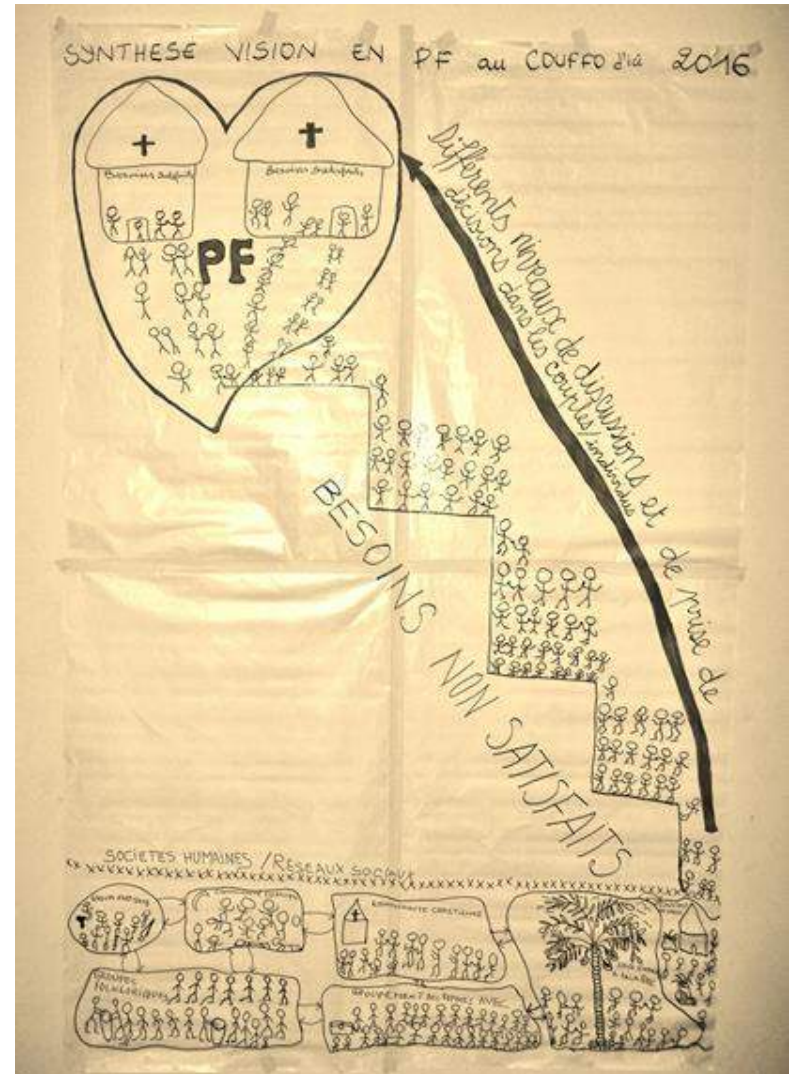 SYNTHESE VISION EN PF au COUFFO d'ià 2016
Besoins Satisfaits
Besoins Satisfaits
PF
Différents niveaux de discussions et de prise de
décisions dans les couples/individus
BESOINS NON SATISFAITS
SOCIETES HUMAINES / RESEAUX SOCIAUX
COMMUNAUTE CHRETIENNE
GROUPES
FOLKLORIQUES
GROUPEMENT DES FEMMES AVEC